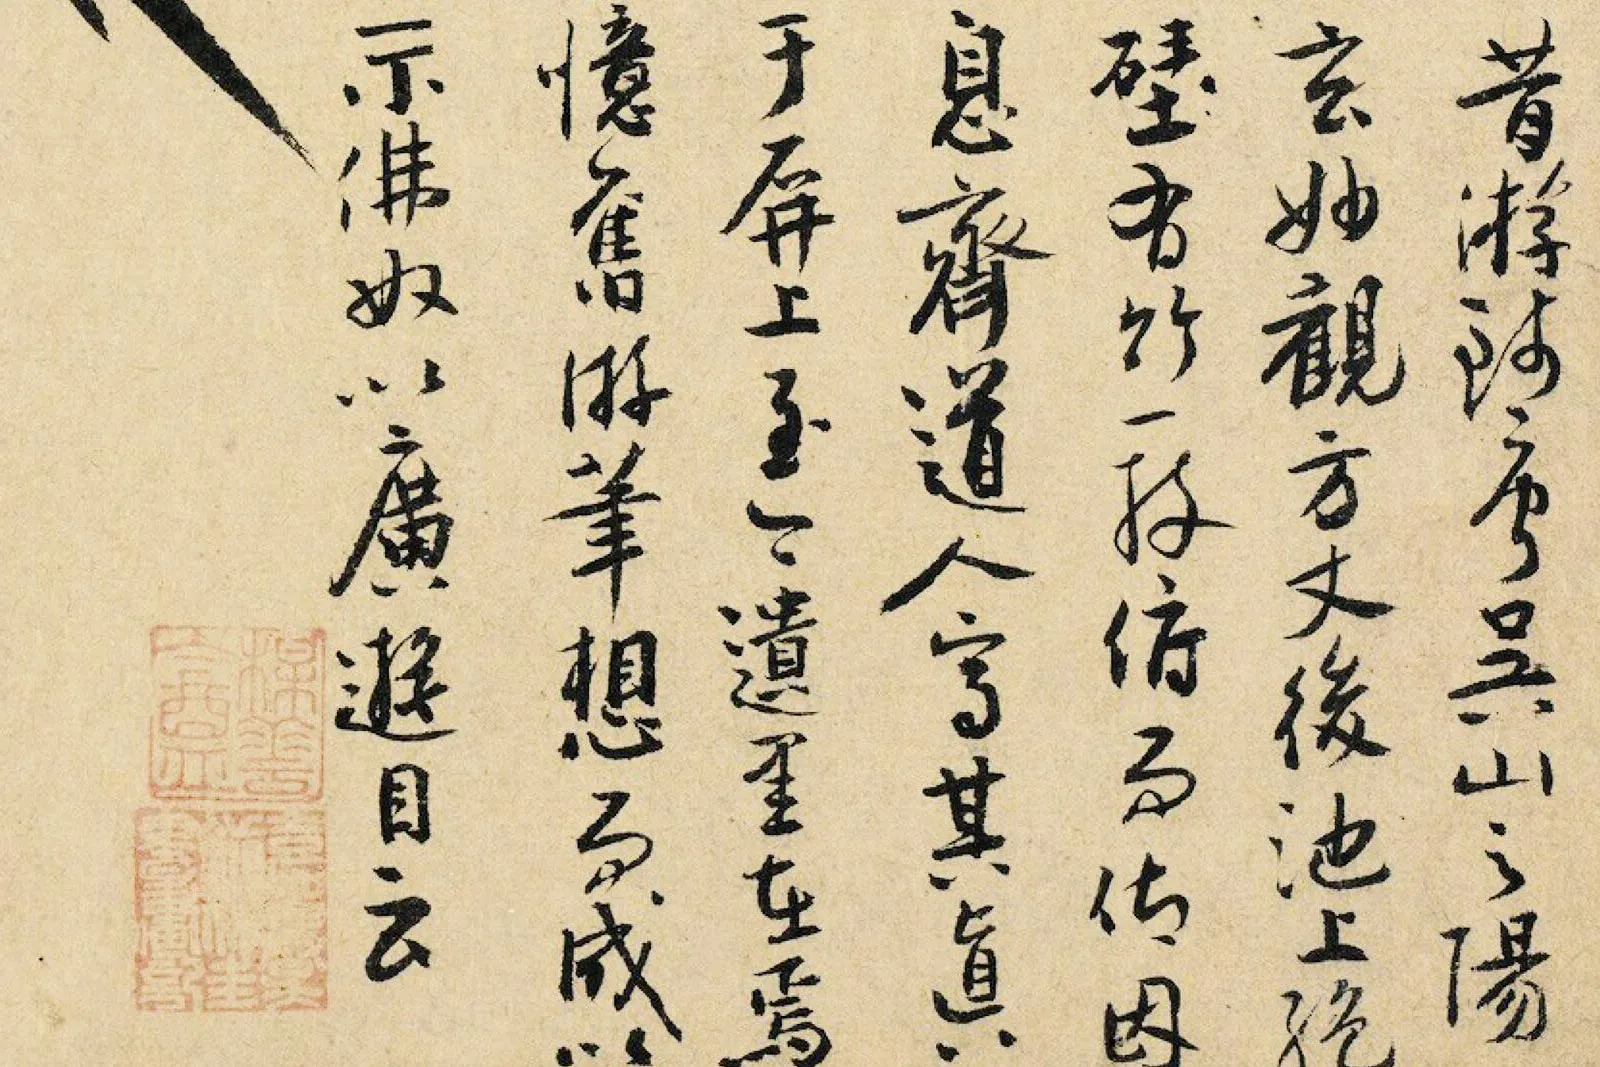 昔游錢唐吳山之陽
玄妙觀方丈後池上絕
壁有竹一枝俯而仰因
息齋道人寫其真
于屏上至今遺墨在焉
憶舊游筆想而成以
示佛奴以廣遊目云